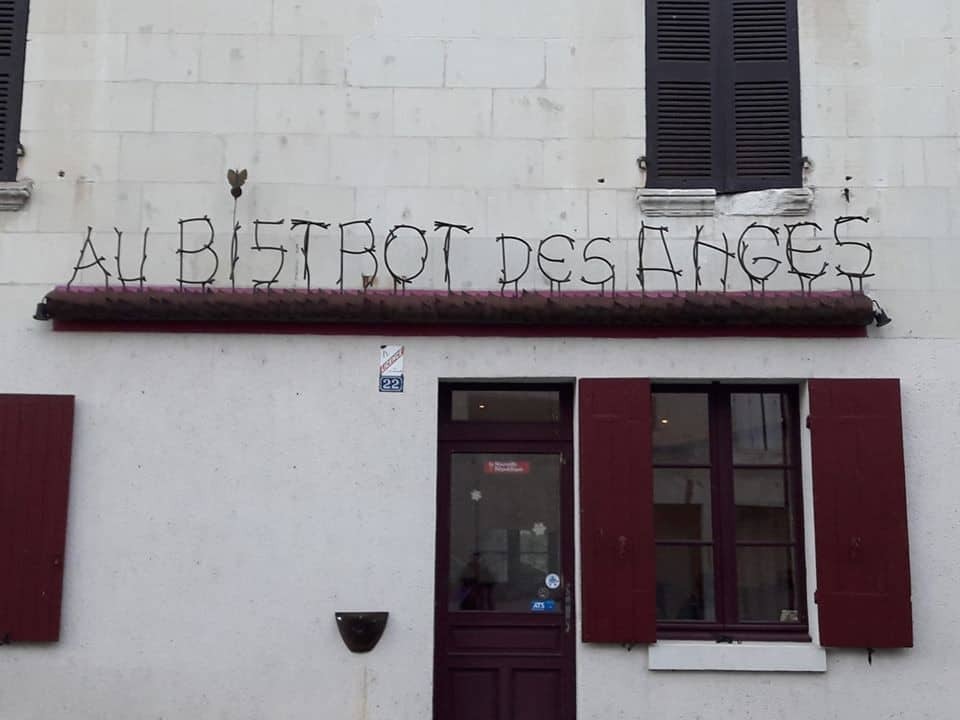 AU BISTROT DES ANGES
LICENCE
22
la Nouvelle
République
ATS